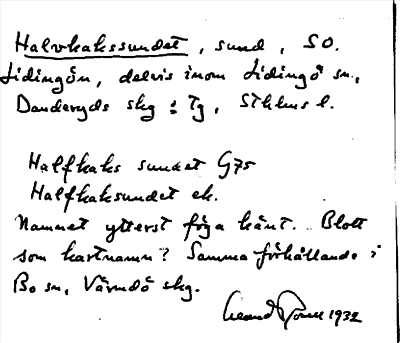 Halvkakssundet, sund, SO.
Lidingön, delvis inom Lidingö sn,
Danderyds skg : Tg, Sthlms l.
Halfkaks sundet G75
Halfkaksundet ek.
Namnet ytterst föga känt. Blott
som kartnamn? Samma förhållande i
Bo sn, Värmdö skg.
1932